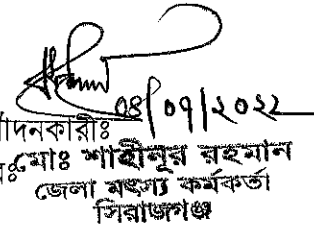 ০৪/০৭/২০২২
াদনকারীঃ
মোঃ শাহীনূর রহমান
জেলা মৎস্য কর্মকর্তা
সিরাজগঞ্জ